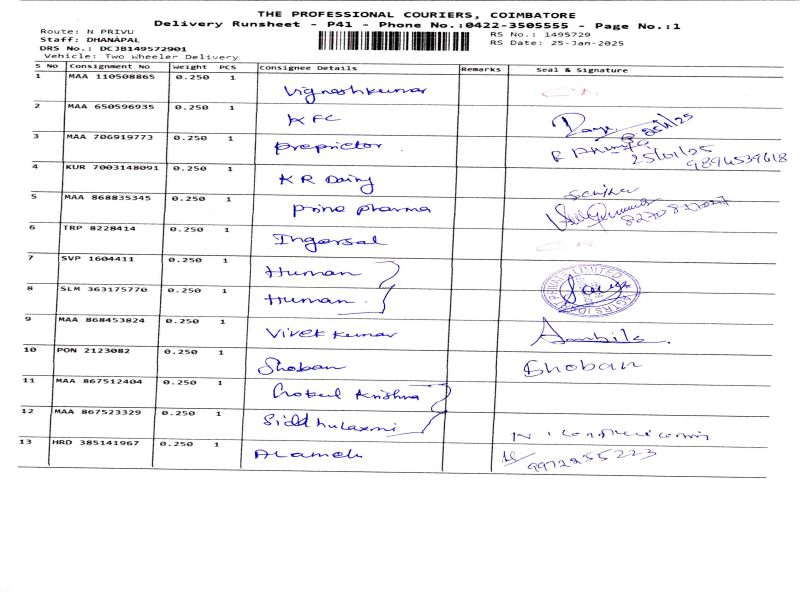 THE PROFESSIONAL COURIERS, COIMBATORE
Delivery Runsheet - P41 - Phone No.:0422-3505555 - Page No.:1
Route: N PRIVU
RS No.: 1495729
Staff: DHANAPAL
RS Date: 25-Jan-2025
DRS No.: DCJB149572901
Vehicle: Two Wheeler Delivery
S No Consignment No Weight PCS Consignee Details Remarks Seal & Signature
1 MAA 110508865 0.250 1 Vignesh kumar
2 MAA 650596935 0.250 1 KFC
3 MAA 706919773 0.250 1 Preprietor 25/01/25 9894539618
4 KUR 7003148091 0.250 1 KR Dairy
5 MAA 868835345 0.250 1 Prine pharma
6 TRP 8228414 0.250 1 Ingersal
7 SVP 1604411 0.250 1 Human
8 SLM 363175770 0.250 1 Human
9 MAA 868453824 0.250 1 Vivek kumar
10 PON 2123082 0.250 1 Shoban Shoban
11 MAA 867512404 0.250 1 Gokul Krishna
12 MAA 867523329 0.250 1 Siddhulaxmi
13 HRD 385141967 0.250 1 Alamelu 9972255223